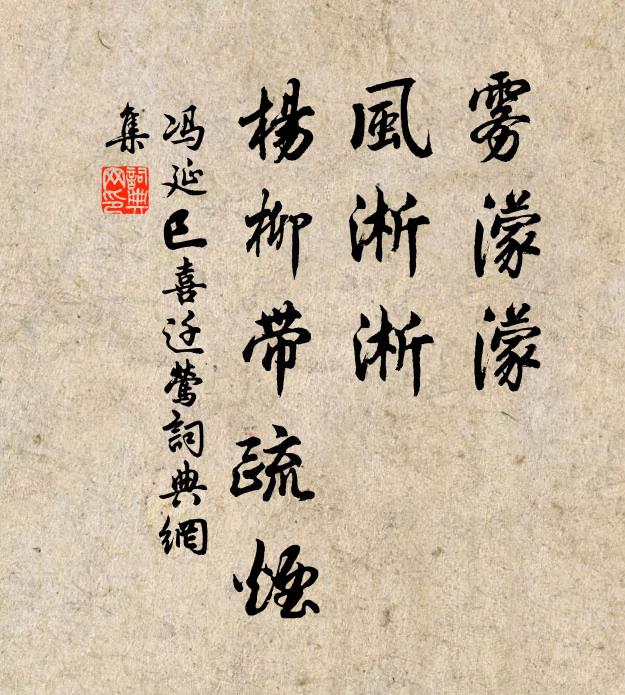 雾濛濛
風淅淅
楊柳帶疏煙
冯延巳喜迁鶯詞典網
集
詞典
网印